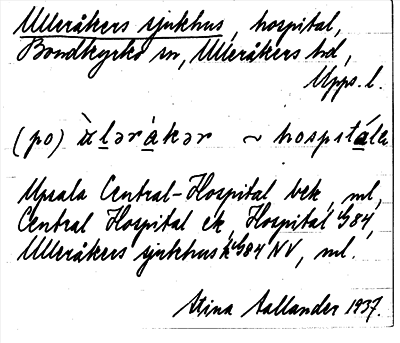 Ulleråkers sjukhus, hospital,
Bondkyrko sn, Ulleråkers hd,
Upps. l.
(po) ùlərákər ~ hospitála
Upsala Central-Hospital bek, ml,
Central Hospital ek, Hospital G84,
Ulleråkers sjukhus G84 NV, ml.
Stina Aallander 1937.